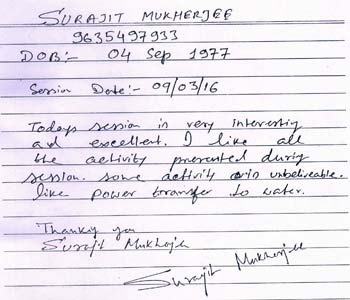 SURAJIT MUKHERJEE
9635497933
DOB:- 04 Sep 1977
Session Date:- 09/03/16
Todays session is very interesting
and excellent. I like all
the activity presented during
session. some activity is unbeliveable.
like power transfer to water.
Thanking you
Surajit Mukherjee
Surajit Mukherjee